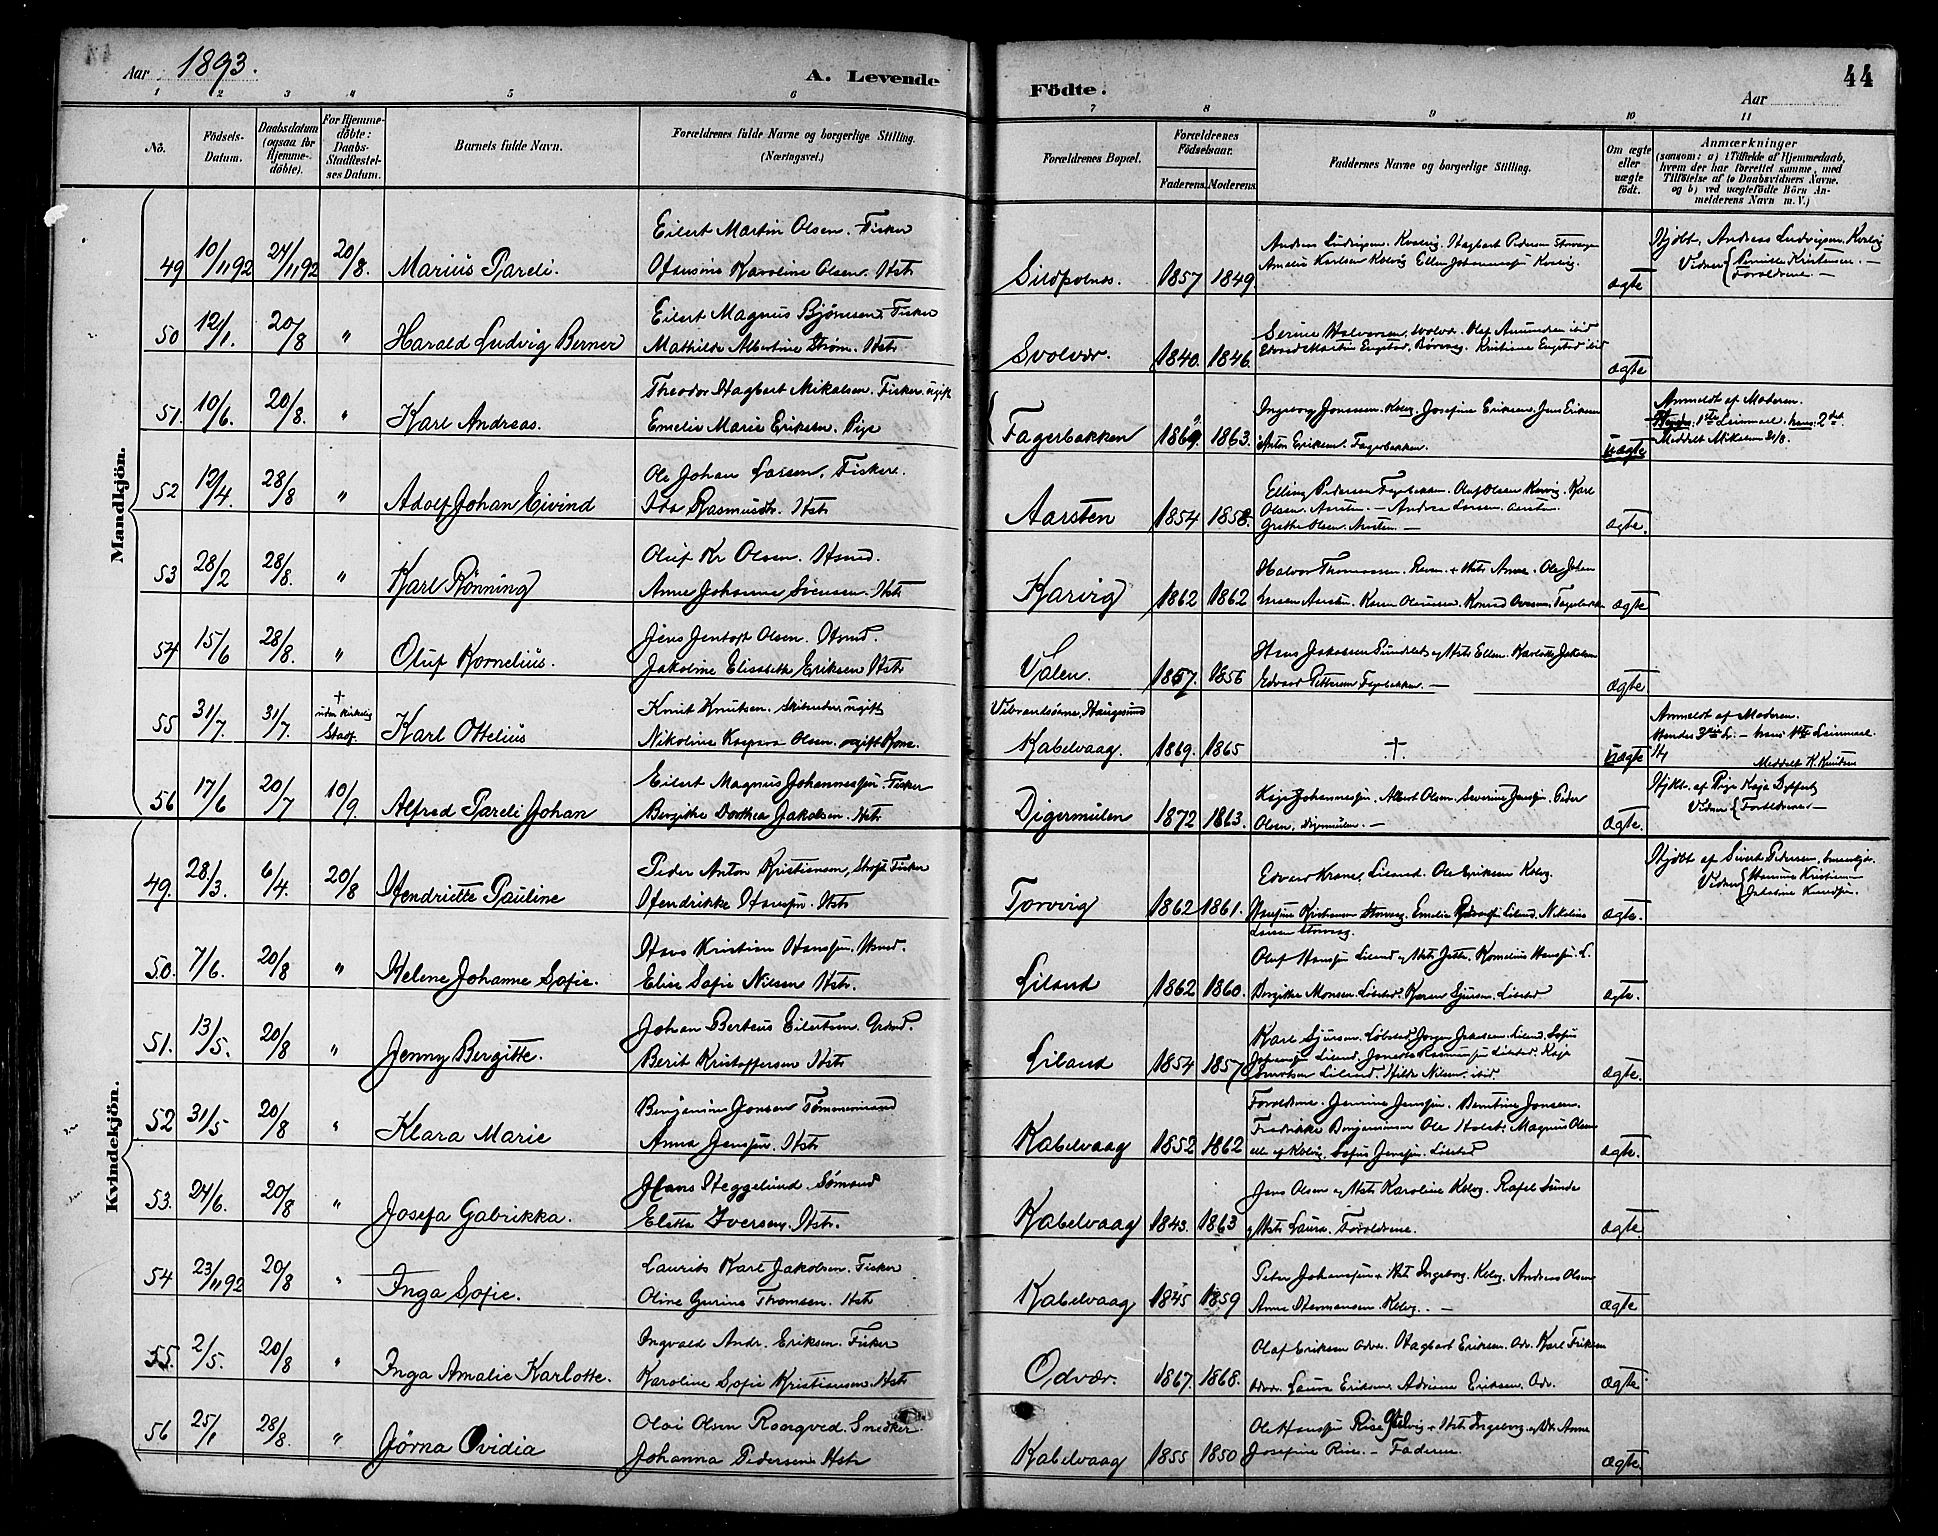 Aar 1893.
A. Levende
Födte.
Aar
44
1 2 3 4 5 6 7 8 9 10 11
No.
Födsels-
Datum.
Daabsdatum
(ogsaa for
Hjemme-
döbte).
For Hjemme-
döbte:
Daabs-
Stadfæstel-
ses Datum.
Barnets fulde Navn.
Forældrenes fulde Navne og borgerlige Stilling.
(Næringsvei.)
Forældrenes Bopæl.
Forældrenes
Födselsaar.
Faderens. Moderens.
Faddernes Navne og borgerlige Stilling.
Om ægte
eller
uægte
födt.
Anmærkninger
(saasom: a) i Tilfælde af Hjemmedaab,
hvem der har forrettet samme, med
Tilföielse af to Daabsvidners Navne,
og b) ved uægtefödte Börn An-
melderens Navn m. V.)
Mandkjön.
49 10/11 92 24/11 92 20/8. Marius Pareli.
Eilert Martin Olsen. Fisker
Karoline Olsen. Hstr
1857 1849
ægte
Hjdbt. Andreas Ludvigsen. Kvalvig
Vidner { Kristensen. —
Forældrene. —
50 12/1. 20/8 " Harald Ludvig Berner
Eilert Magnus Bjørnsen. Fisker
Mathilde Albertine Strøm. Hstr
Svolvær. 1840. 1846.
ægte
51. 10/6. 20/8. " Karl Andreas.
Theodor Hagbart Mikalsen. Fisker. ugift
Emelie Marie Eriksen. Pige
Fagerbakken 1869. 1863.
Ingeborg Jonssen. Kblvg. Josefine Eriksens. Jens Eriksen
Anton Eriksen. Fagerbakken.
uægte
Anmeldt af Moderen.
Meddelt Mikalsen 31/8.
52 12/4. 28/8 " Adolf Johan Eivind
Ole Johan Larsen. Fisker.
Ida Rasmusdtr. Hstr
Aarsten 1854 1858.
Elling Pedersen Fagerbakken. Oluf Olsen Karvig. Karl
Olsen. Aarsten. — Andrea Larsen. Aarsten.
Grethe Olsen. Aarsten. —
ægte.
53 28/2 28/8. " Karl Rönning
Oluf Kr Olsen. Hsmd.
Anne Johanne Svensen. Hstr
Karvig 1862 1862
Halvor Thomassen. Reven. + Hstr Anne. Ole Johan
Larsen Aarsten. Karen Olausen. Konrad Fagerbakken
ægte
54 15/6 28/8. " Oluf Kornelius.
Jens Jentoft Olsen. Hsmd.
Jakobine Elisabeth Eriksen Hstr
Valen. 1857. 1856
Hans Jakobsen Sundklet og Hstr Ellen. Karlotte Jakobsen
Edvard Pettersen Fagerbakken. —
ægte
55 31/7. 31/7. † uden kirkelig Stadf. Karl Ottelius
Knut Knutsen. Skibreder, ugift
Nikoline Kaspara Olsen. ugift Kone.
Haugesund
Kabelvaag. 1869. 1865
†.
uægte
Anmeldt af Moderen.
Hendes 3die L. — hans 1ste Leiermaal.
Meddelt K. Knutsen
56 17/6 20/7 10/9. Alfred Pareli Johan
Eilert Magnus Johannessen. Fisker
Bergithe Dorthea Jakobsen. Hstr
Digermulen 1872 1863.
Kaja Johannessen. Albert Olsen. Severine Jenssen. Peder
Olsen. Digermulen. —
ægte.
Hjdbt. af Pige Kaja
Vidner { Forældrene —
Kvindekjön.
49. 28/3. 6/4. 20/8 Hendriette Pauline
Peder Anton Kristiansen, Fisker
Hendrikke Hanssen. Hstr
Torvig 1862 1861.
Edvard Krane, Liland. Ole Eriksen Kblvg.
Kristiansen Storvaag. Emelie Liland. Nikoline
Larsen Storvaag.
ægte.
Hjdbt af Sivert Pedersen,
Vidner { Kristiansen
Knudsen.
50. 7/6. 20/8 " Helene Johanne Sofie.
Hans Kristian Hanssen. Hsmd.
Elise Sofie Nilsen Hstr.
Liland 1862 1860.
Oluf Hanssen Liland og Hstr Jette. Kornelius Hanssen. L.
Bergitte Monsen. Løbsted. Karen Sjursen. Løbsted
ægte.
51. 13/5. 20/8 " Jenny Bergitte.
Johan Berteus Eilertsen. Grdmd.
Berit Kristoffersen Hstr
Liland 1854 1857
Karl Sjursen. Løbsted. Jørgen Jakobsen. Liland. Sofus
Johansen Liland. Rasmussen Løbsted. Kaja
Liland. Hilda Nilsen. ibid.
ægte.
52 31/5 20/8 " Klara Marie
Benjamin Jonsen Tømmermand
Anna Jenssen. Hstr
Kabelvaag 1852 1862
Forældrene. Jenssen. Berntine Jonsen.
Fredrikke Benjaminsen Ole Holst. Magnus Olsen
alle af Kblvg. Sofus Jenssen. Løbsted
ægte.
53. 24/6. 20/8 " Josefa Gabrikka.
Hans Heggelund. Sømand
Eletta Iversen. Hstr.
Kabelvaag 1843. 1863
Jens Olsen og Hstr Karoline Kblvg. Rafel Sunde
og Hstr Laura. Forældrene.
ægte.
54 23/11 92 20/8 " Inga Sofie.
Laurits Karl Jakobsen. Fisker
Oline Gurine Thomsen. Hstr
Kabelvaag 1845 1859
Peter Johanssen + Hstr Ingeborg. Kblvg. Andreas Olsen
Anne Hermansen Kblvg. —
ægte
55. 2/5. 20/8 " Inga Amalie Karlotte.
Ingvald Andr. Eriksen. Fisker
Karoline Sofie Kristiansen. Hstr
Odvær. 1867. 1868.
Olaf Eriksen Odvr. Hagbart Eriksen. Odv. Karl Eriksen
Odvr. Laura Eriksen. Adriane Eriksen. Odv.
ægte
56 25/1 28/8. " Jörna Ovidia
Olai Olsen Roaqved. Snedker
Johanna Pedersen Hstr
Kabelvaag 1855 1850
Ole Hanssen Rise + Hstr Ingeborg. og Anne
Josefine Rise. — Faderen.
ægte.